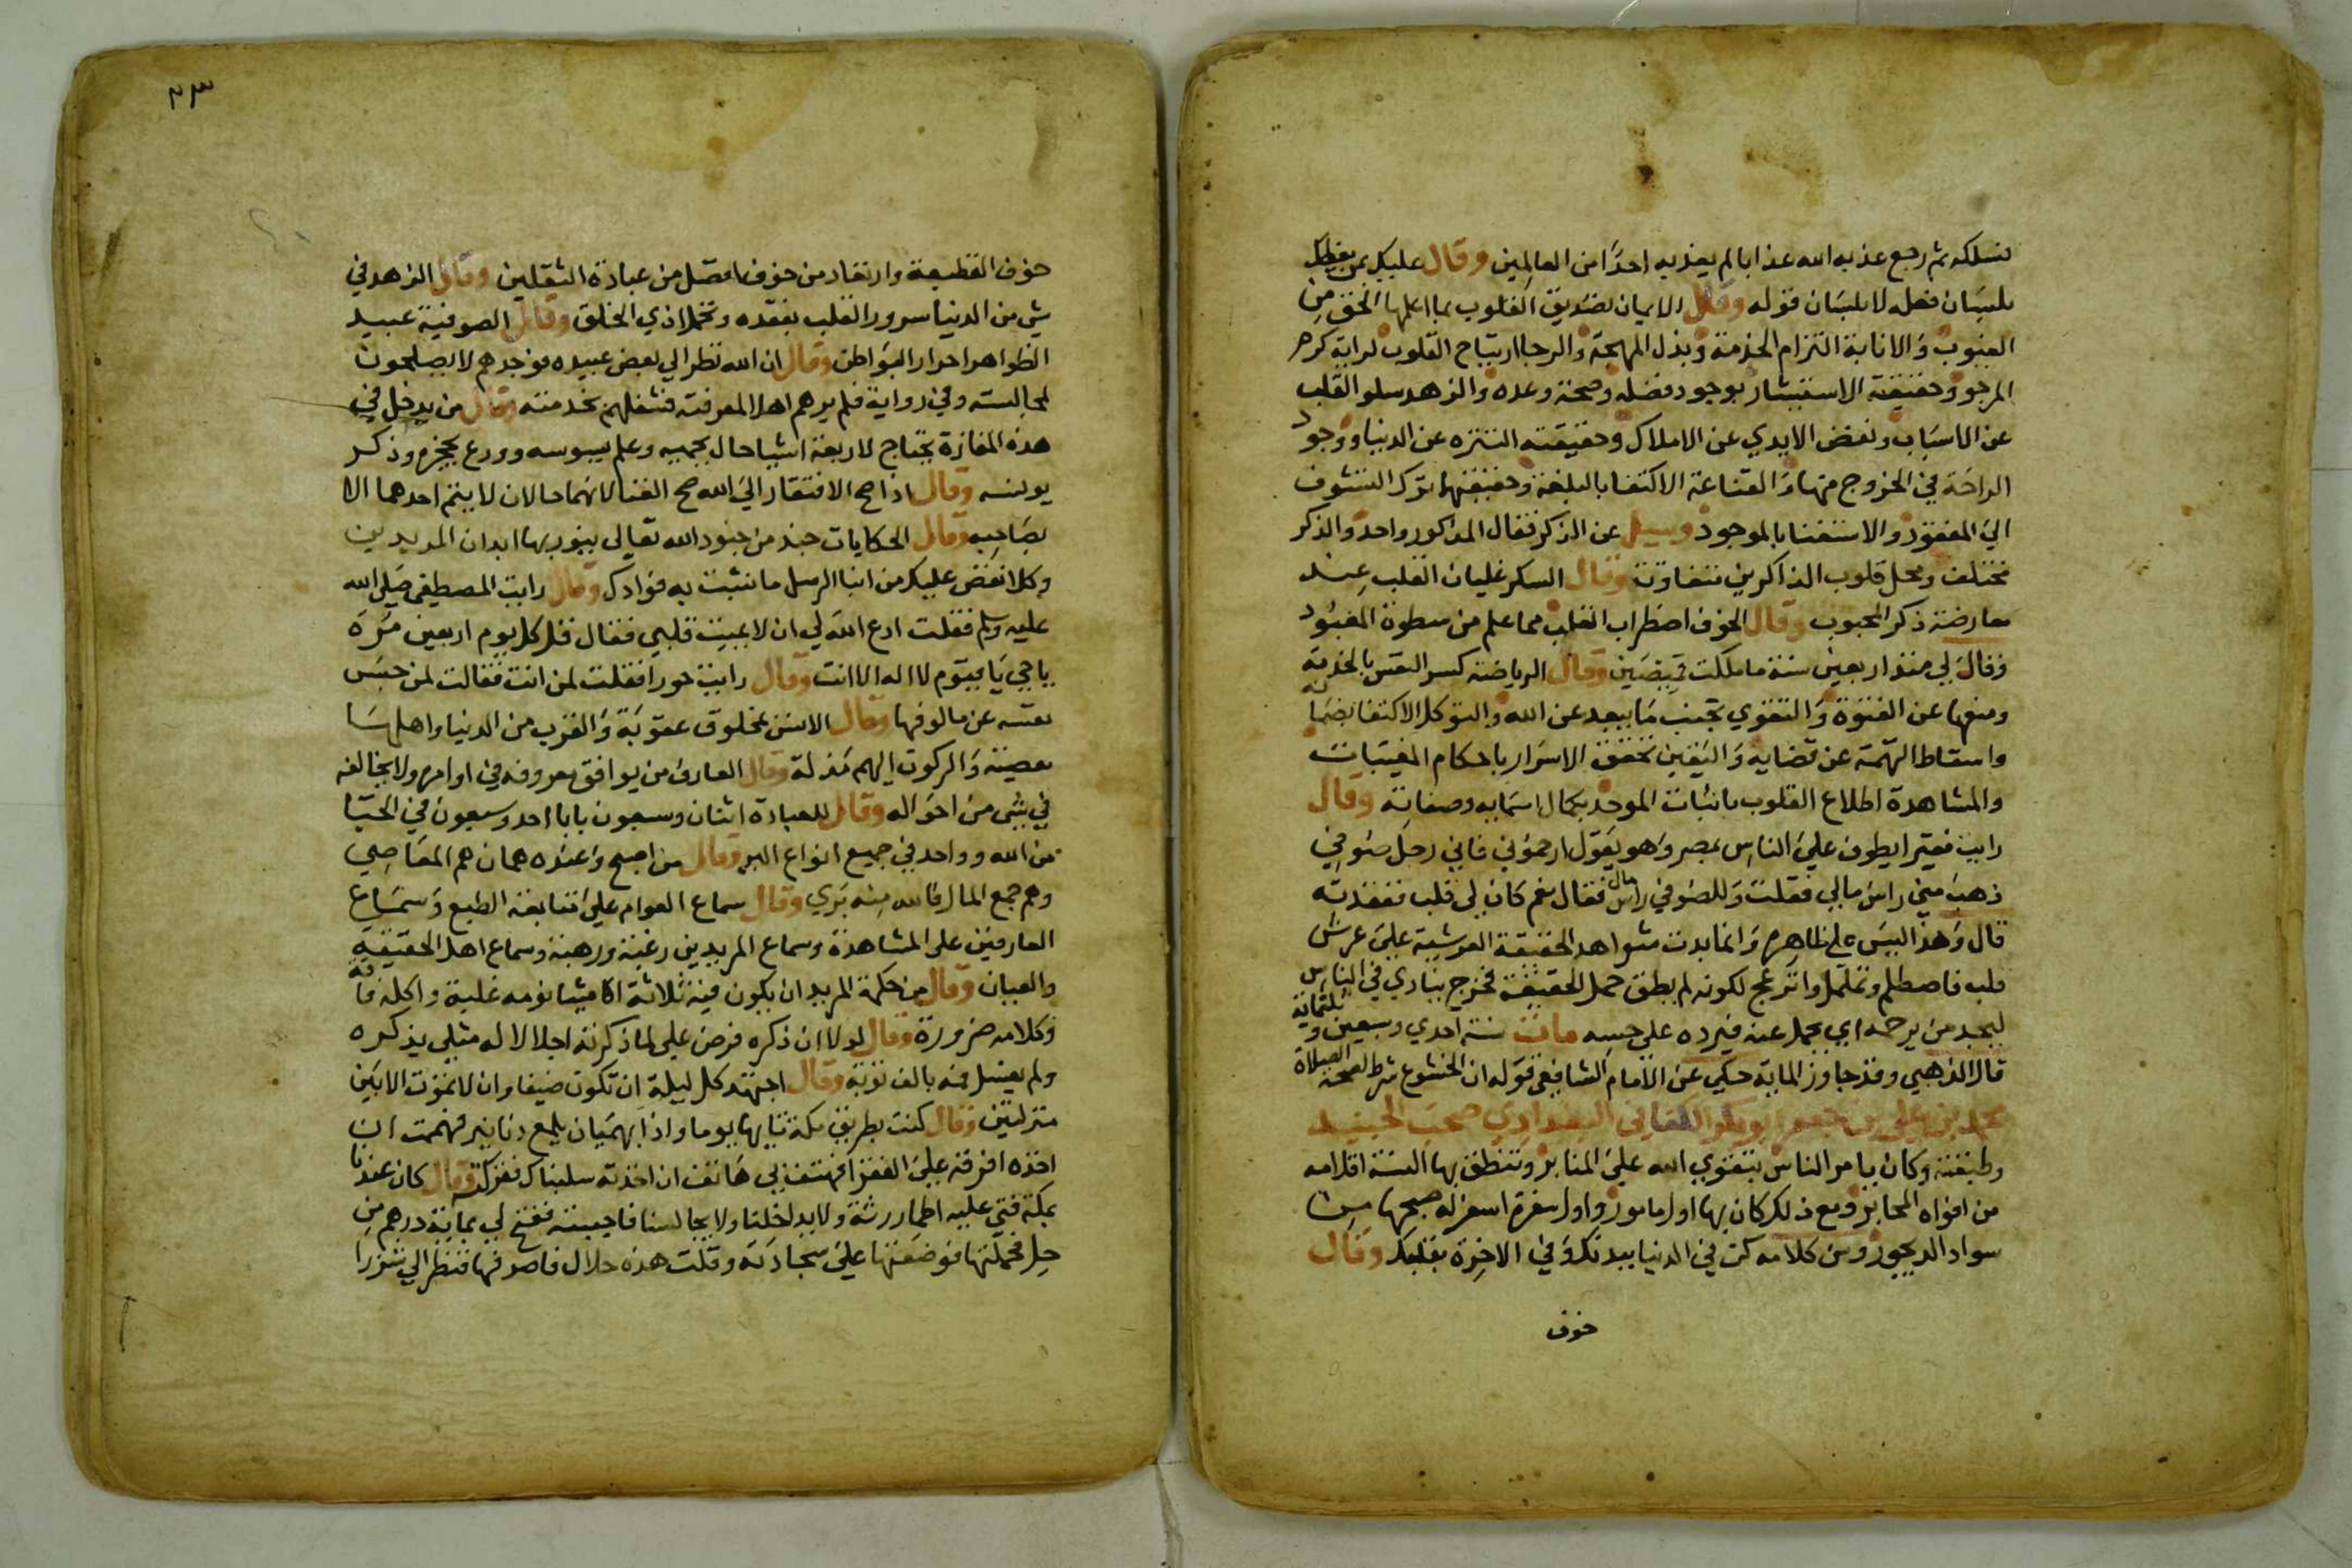 فسلكه ثم رجع عذبه الله عذابا لم يعذبه احدًا من العالمين وقال عليك بمن يعظك
بلسان فعله لا بلسان قوله وقال الايمان تصديق القلوب بما اعلمها الحق من
الغيوب والانابة التزام الخدمة وبذل المهجة والرجا ارتياح القلوب لراية كرم
المرجو وحقيقة الاستبشار بوجود فضله وصحة وعده والزهد سلو القلب
عن الاسباب ونفض الايدي عن الاملاك وحقيقته التنزه عن الدنيا ووجود
الراحة في الخروج منها والقناعة الاكتفا بالبلغة وحقيقتها ترك التشوف
الي المفقود والاستغنا بالموجود وسيل عن الذكر فقال المذكور واحد والذكر
مختلف ومحل قلوب الذاكرين متفاوتة وقال السكر غليان القلب عند
معارضة ذكر المحبوب وقال الخوف اضطراب القلب مما علم من سطوة المعبود
وقال لي منذ اربعين سنة ما ملكت قميصين وقال الرياضة كسر النفس بالخدمة
ومنعها عن الفتوة والتقوي تجنب ما يبعد عن الله والتوكل الاكتفا بضمانه
واسقاط التهمة عن قضايه واليقين تحقق الاسرار باحكام المغيبات
والمشاهدة اطلاع القلوب باثبات الموحد بكمال اسمايه وصفاته وقال
رايت فقيرا يطوف علي الناس بمصر وهو يقول ارحموني فاني رجل صوفي
ذهب مني راس مالي فقلت وللصوفي راس مال فقال نعم كان لي قلب ففقدته
قال وهذا لبس علي ظاهره وانما بدت شواهد الحقيقة العرشية علي عرش
قلبه فاصطلم وتململ وانزعج لكونه لم يطق حمل الحقيقة فخرج ينادي في الناس
ليجد من يرحمه اي يحمل عنه فيرده علي حسه مات سنة احدي وسبعين وثلثماية
قال الذهبي وقد جاوز الماية حكي عن الامام الشافعي قوله ان الخشوع شرط لصحة الصلاة
محمد بن علي بن جعفر ابو بكر الكتاني البغدادي صحب الجنيد
وطبقته وكان يامر الناس بتقوي الله علي المنابر وتنطق بها السنة اقلامه
من افواه المحابر ومع ذلك كان بها اول مامور واول سفرة اسفر له صبحها من
سواد الديجور ومن كلامه كن في الدنيا ببدنك وفي الاخرة بقلبك وقال
خوف
٢٣
خوف القطيعة وارتعاد من خوف افضل من عبادة الثقلين وقال الزهد في
شي من الدنيا سرور القلب بفقده وتحمل اذي الخلق وقال الصوفية عبيد
الظواهر احرار البواطن وقال ان الله نظر الي بعض عبيده فوجدهم لا يصلحون
لمجالسته وفي رواية فلم يرهم اهلا لمعرفته فشغلهم بخدمته وقال من يدخل في
هذه المفازة يحتاج لاربعة اشيا حال يحميه وعلم يسوسه وورع يحجزه وذكر
يونسه وقال اذا صح الافتقار الي الله صح الغنا لانهما حالان لا يتم احدهما الا
بصاحبه وقال الحكايات جند من جنود الله تعالي ينور بها ابدان المريدين
وكلا نقص عليك من انبا الرسل ما نثبت به فوادك وقال رايت المصطفي صلي الله
عليه وسلم فقلت ادع الله لي ان لا يميت قلبي فقال قل كل يوم اربعين مرة
يا حي يا قيوم لا اله الا انت وقال رايت حورا فقلت لمن انت فقالت لمن حبس
نفسه عن مالوفها وقال الانس بمخلوق عقوبة والقرب من الدنيا واهلها
معصية والركون اليهم مذلة وقال العارف من يوافق معروفه في اوامره ولا يخالفه
في شي من احواله وقال للعبادة اثنان وسبعون بابا احد وسبعون في الحيا
من الله وواحد في جميع انواع البر وقال من اصبح وعنده همان هم المعاصي
وهم جمع المال فالله منه بري وقال سماع العوام علي متابعة الطبع وسماع
العارفين علي المشاهدة وسماع المريدين رغبة ورهبة وسماع اهل الحقيقة
والعيان وقال من حكمة المريد ان يكون فيه ثلاثة اشيا نومه غلبة واكله فاقة
وكلامه ضرورة وقال لولا ان ذكره فرض علي لما ذكرته اجلالا له مثلي يذكره
ولم يغسل فمه بالف توبة وقال اجتهد كل ليلة ان تكون ضيفا وان لا تموت الا بين
منزلتين وقال كنت بطريق مكة تايها يوما واذا بهميان يلمع دنانير فهممت ان
اخذه افرقه علي الفقرا فهتف بي هاتف ان اخذته سلبناك فقرك وقال كان عندنا
بمكة فتي عليه اطمار رثة ولا يداخلنا ولا يجالسنا فاحببته ففتح لي بماية درهم من
حل فحملتها فوضعتها علي سجادته وقلت هذه حلال فاصرفها فنظر الي شزرا